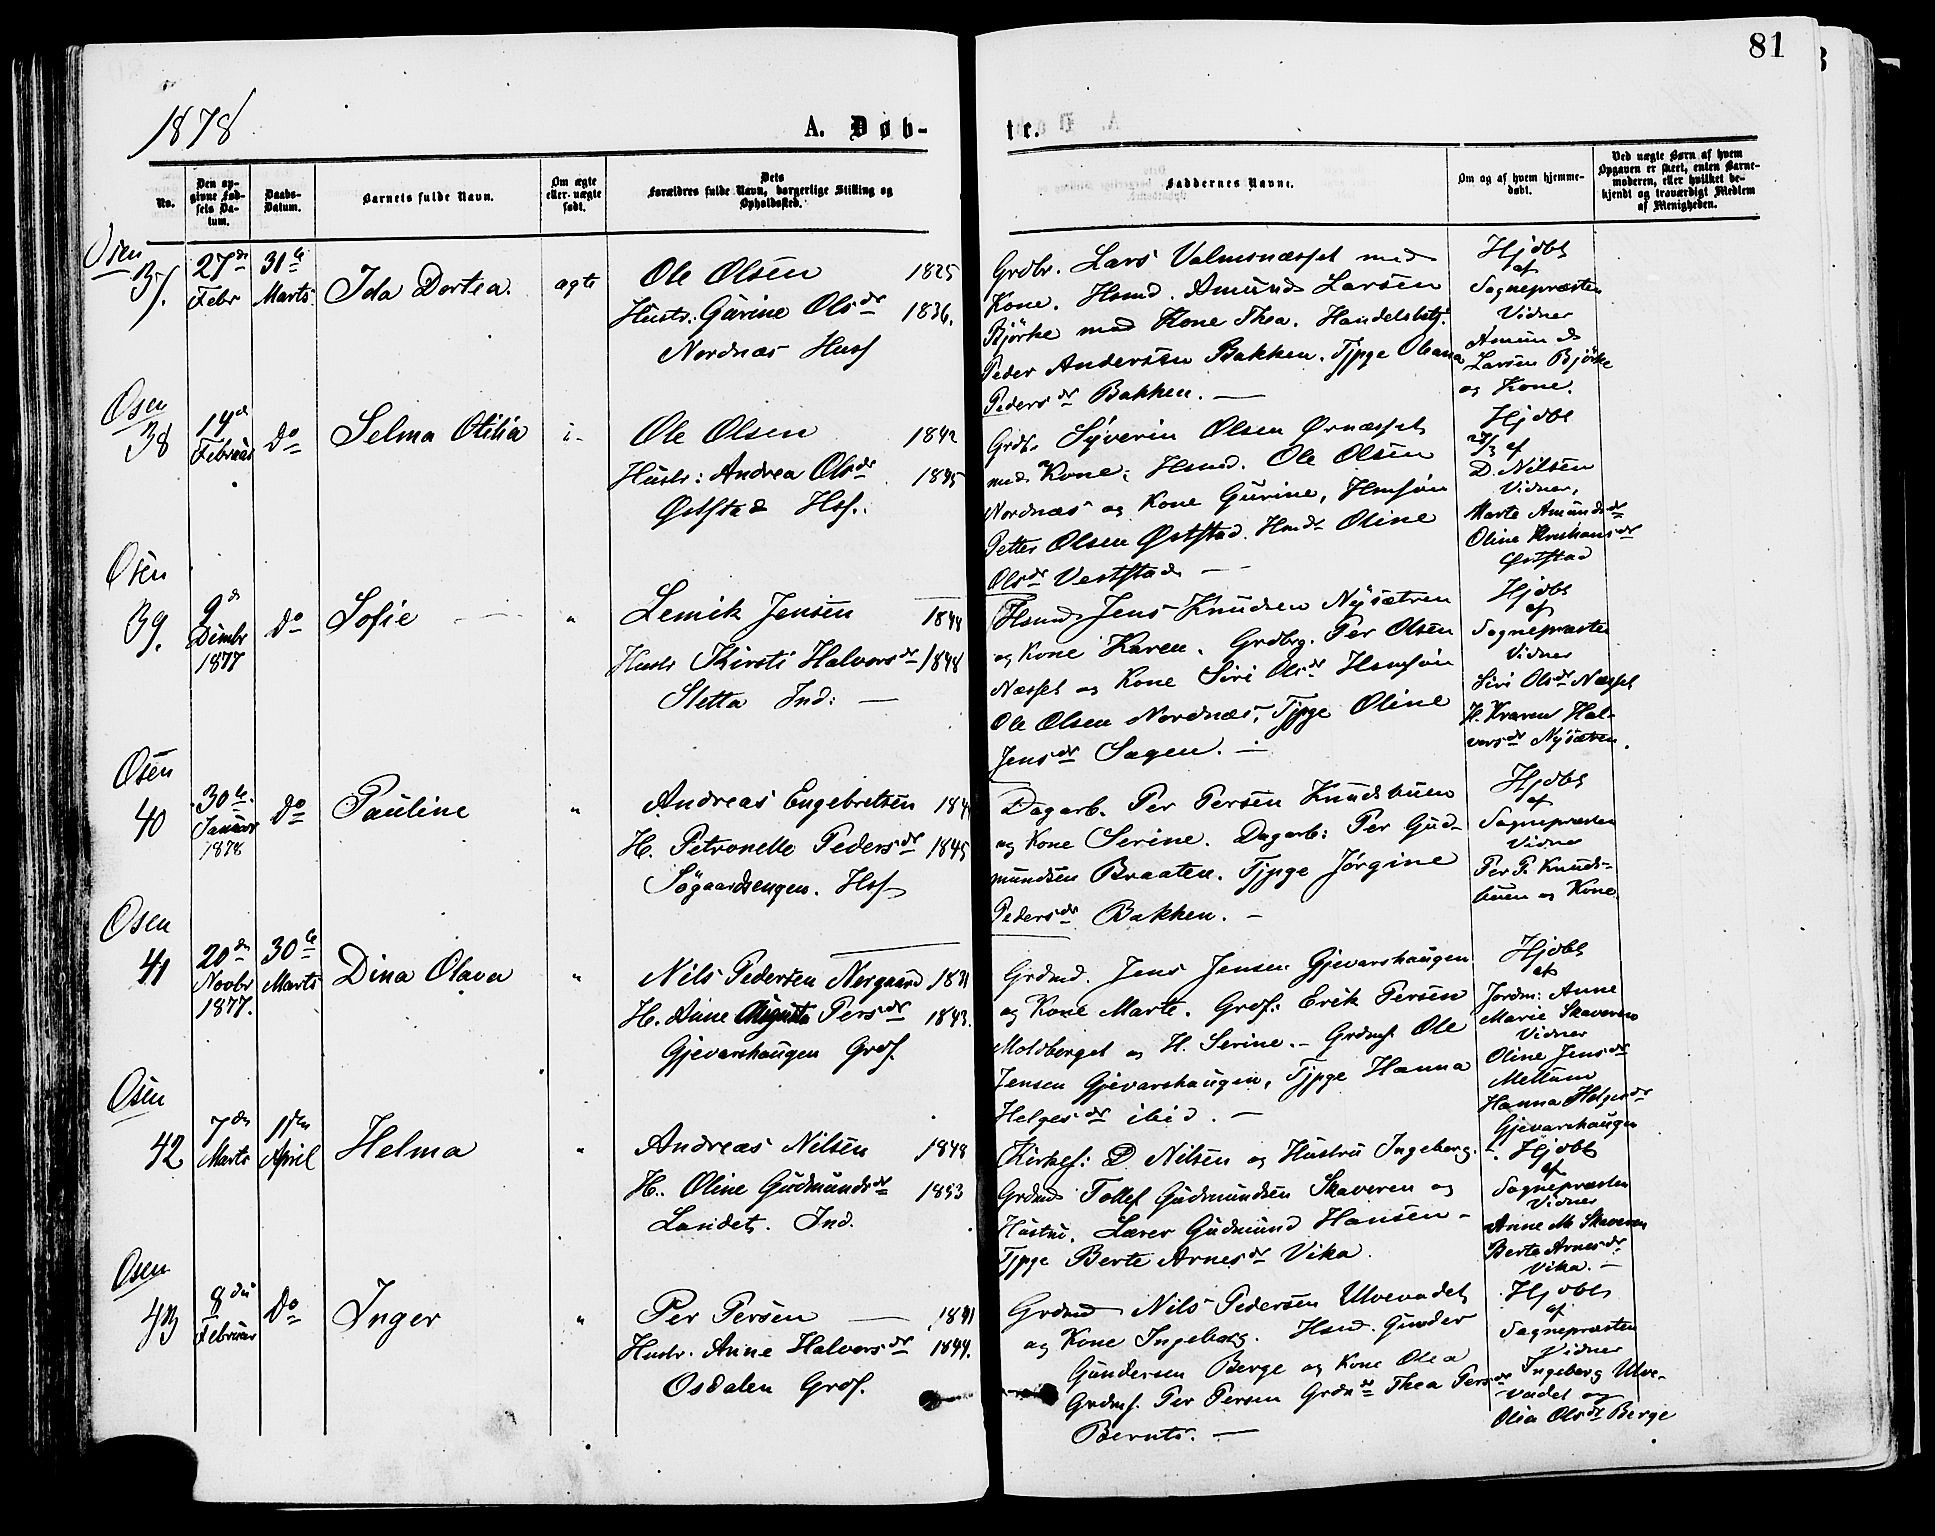 81
1878
A. Døb-
te.
No.
Den op-
givne Fød-
sels Da-
tum.
Daabs-
Datum.
Barnets fulde Navn.
Om ægte
eller uægte
født.
Dets
Forældres fulde Navn, borgerlige Stilling og
Opholdssted.
Faddernes Navne.
Om og af hvem hjemme-
døbt.
Ved uægte Børn af hvem
Opgaven er skeet, enten Barne-
moderen, eller hvilket be-
kjendt og troværdigt Medlem
af Menigheden.
Osen
37.
27de
Febr
31te
Marts
Ida Dortea.
ægte
Ole Olsen 1825
Hustr: Gurine Olsdr 1836.
Nordnæs Husf
Grdbr. Lars Valmsnæsset med
Kone. Hsmd. Amund Larsen
Bjørke med Kone Thea. Handelsbetj.
Peder Andersen Bakken. Tjpge Oleana
Pedersdr Bakken. —
Hjdbt
af
Sognepræsten
Vidner
Amund
Larsen Bjørke
og Kone.
Osen
38
19d
Februar
Do
Selma Otilia
i-
Ole Olsen 1842
Hustr: Andrea Olsdr 1845
Øststad Hsf.
Grdbr Syverin Olsen Ørnæsset
med Kone; Hsmd. Ole Olsen
Nordnæs og Kone Gurine, Hmsøn
Petter Olsen Øststad. Hmdr Oline
Olsdr Veststad —
Hjdbt
27/3 af
D. Nilsen
Vidner,
Marte Amundsdr
Oline
Øststad
Osen
39.
9d
Dcmbr
1877
Do
Sofie —
"
Lemik Jensen 1844
Hustr Kirsti Halvorsdr 1848
Sletta Ind: —
Hsmd Jens Knudsen Nysætren
og Kone Karen. Grdbrg. Per Olsen
Næsset og Kone Siri Olsdr Hsmsøn
Ole Olsen Nordnæs, Tjpge Oline
Jensdr Sagen. —
Hjdbt
af
Sognepræsten
Vidner
Siri Olsdr Næsset
H. Karen Hal-
vorsdr Nysætren.
Osen
40
30te
Januar
1878
Do
Pauline
"
Andreas Engebretsen 184
H. Petronelle Pedersdr 1845
Søgaardsengen. Hsf
Dagarb. Per Persen Knudsbuen
og Kone Serine. Dagarb: Per Gud-
mundsen Braaten. Tjpge Jørgine
Pedersdr Bakken. —
Hjdbt
af
Sognepræsten
Vidner
Per P. Knuds-
buen og Kone
Osen
41
20de
Novbr
1877.
30te
Marts
Dina Olava
"
Nils Pedersen Norgaard 1831
H. Anne Augusta Persdr 1843.
Gjevarshaugen Grdf.
Grdmd. Jens Jensen Gjevarshaugen
og Kone Marte. Grdf: Erik Persen
Moldberget og H. Serine. — Grdmf. Ole
Jensen Gjevarshaugen, Tjpge Hanna
Helgesdr ibid. —
Hjdbt
af
Jordm: Anne
Marie Skaveren
Vidner
Oline Jensdr
Mellum
Hanna Helgesdr
Gjevarshaugen
Osen
42
7de
Marts
1ste
April
Helma
"
Andreas Nilsen 1848
H. Oline Gudmundsdr 1853
Landet. Ind.
Kirkes: D. Nilsen og Hustru Ingeborg.
Grdmd Tollef Gudmundsen Skaveren og
Hustru, Lærer Gudmund Hansen —
Tjpge Berte Arnesdr Vika.
Hjdbt
af
Sognepræsten
Vidner
Anne M. Skaveren
Berte Arnesdr
Vika. —
Osen
43
8de
Februar
Do
Inger
"
Per Persen — 1841
Hustr. Anne Halvorsdr 1844.
Osdalen Grdf.
Grdmd Nils Pedersen Ulvevadet
og Kone Ingeborg. Hsmd. Gunder
Gundersen Berge og Kone Olea
Grdmf. Per Persen Grdmdr Thea Persdr
Bernts. —
Hjdbt
af
Sognepræsten
Vidner
Ingeborg Ulve-
vadet og
Olea Olsdr Berge